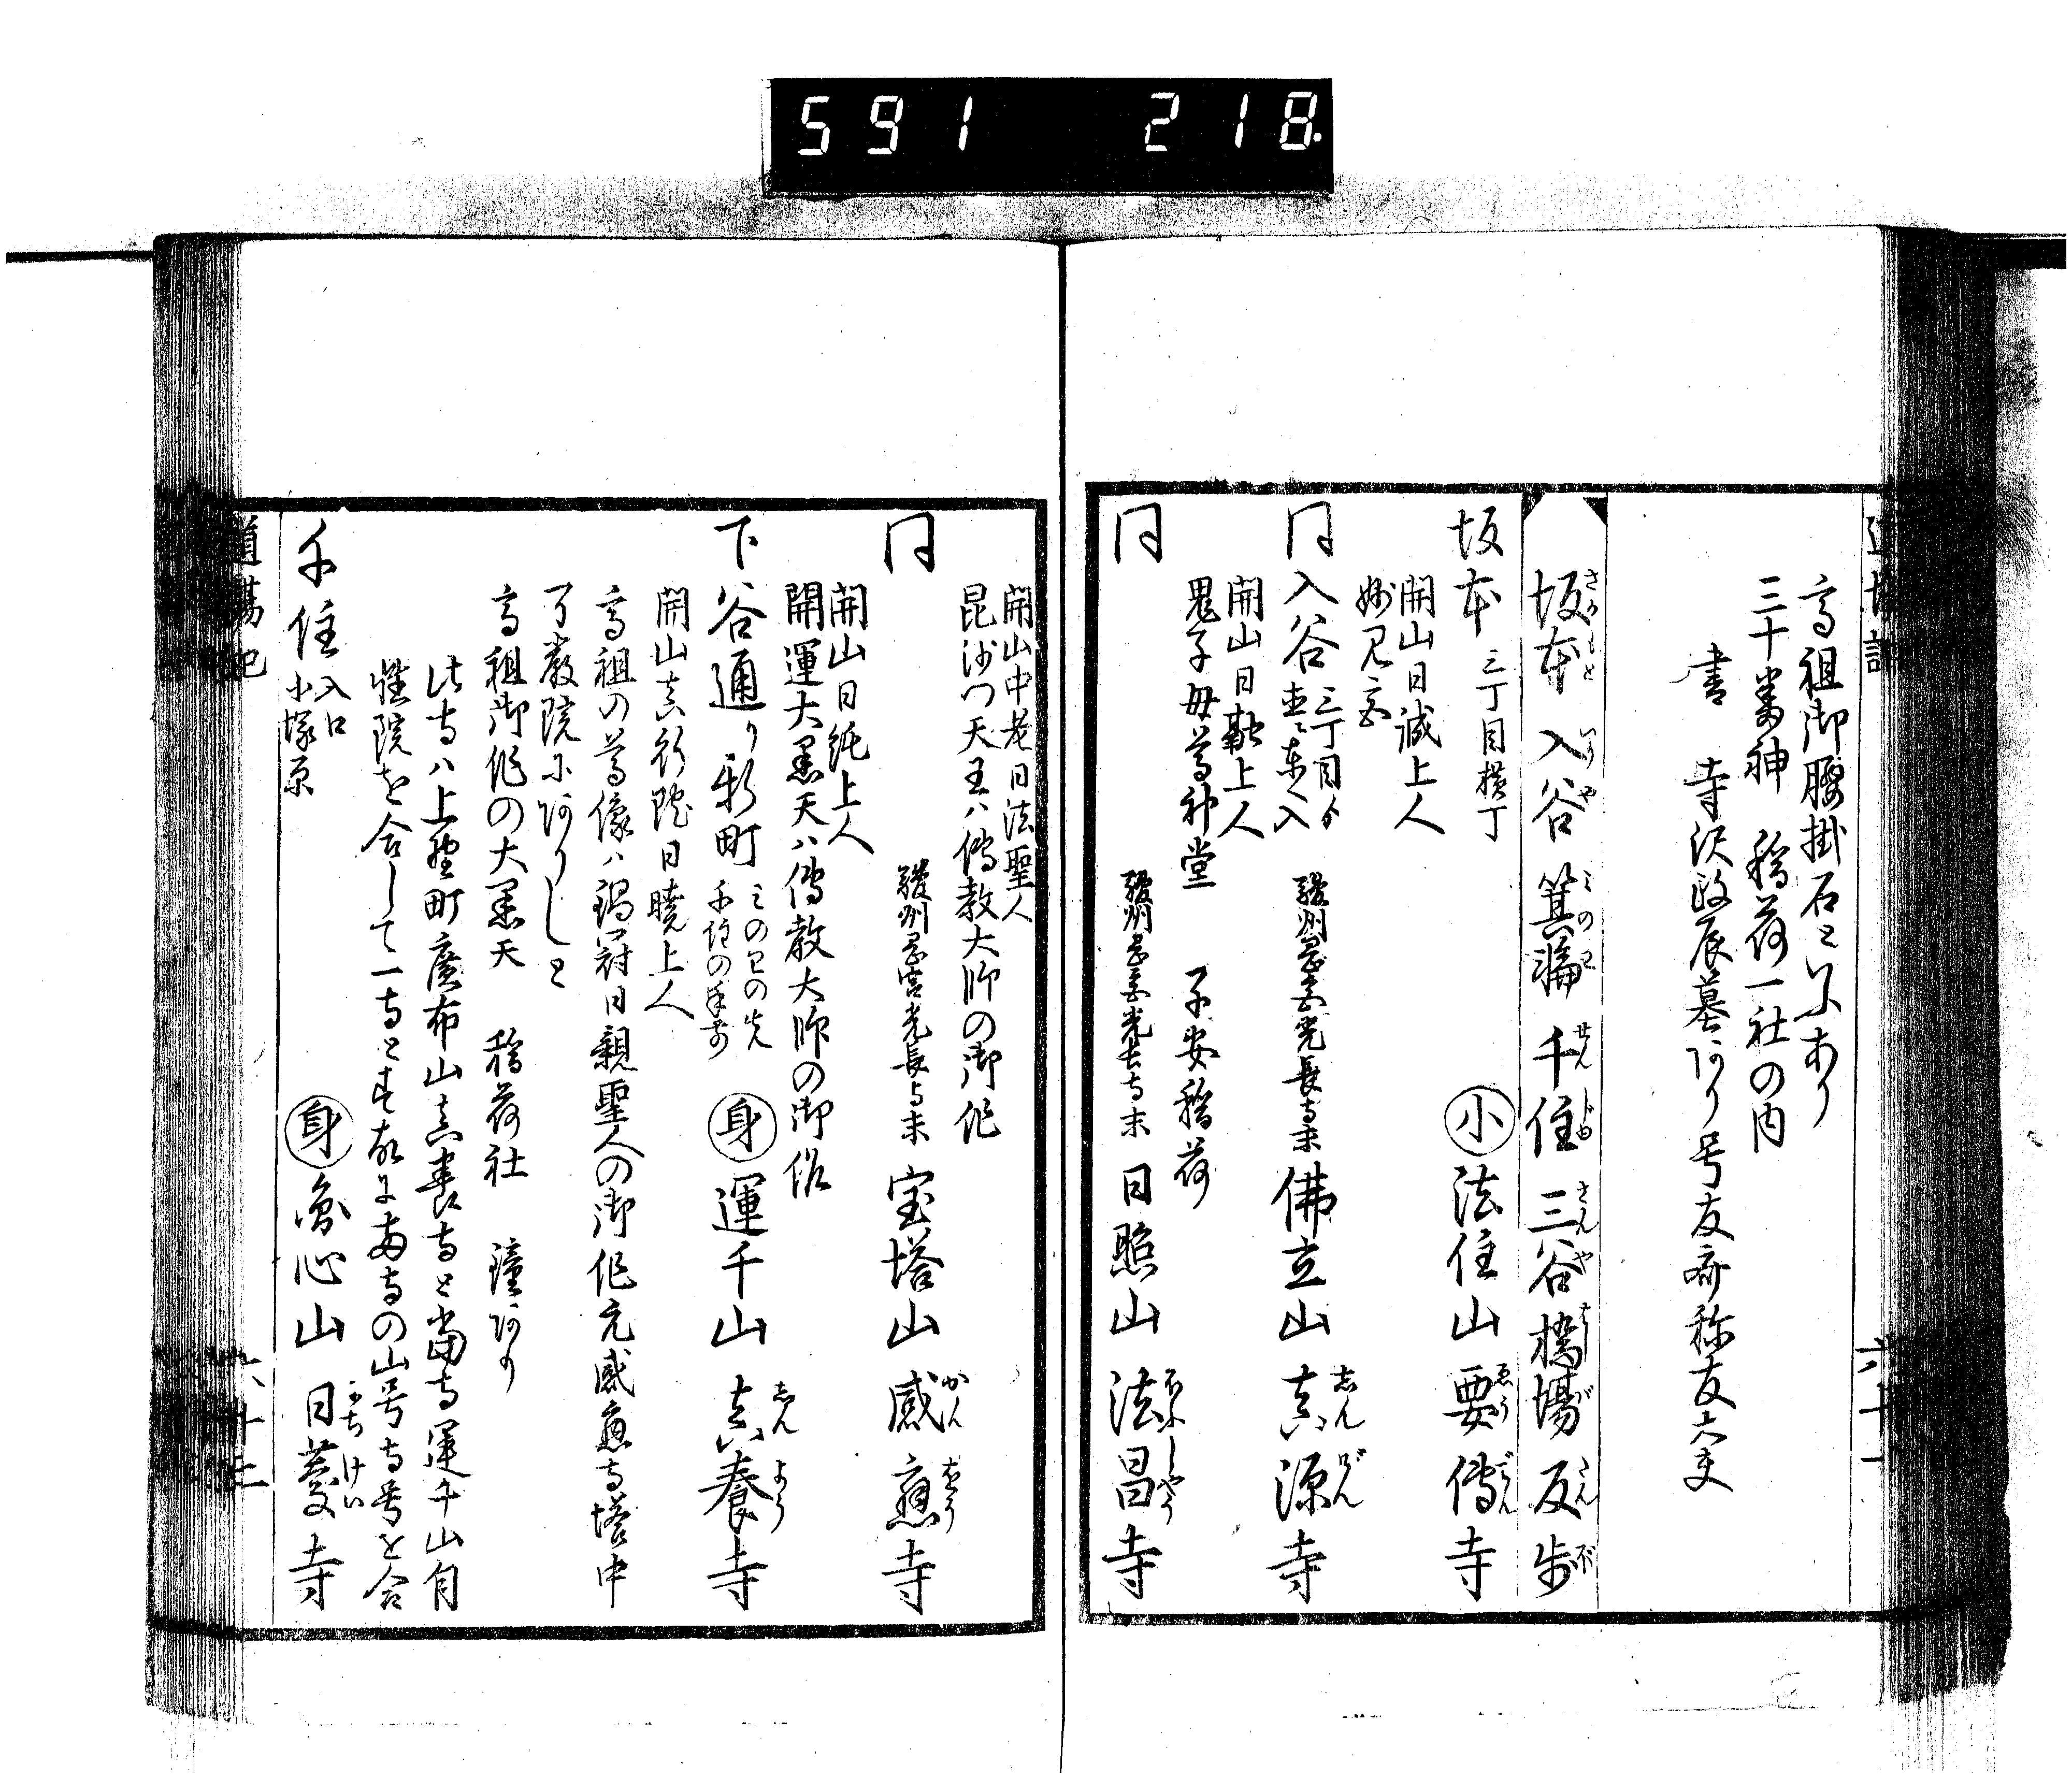 591 218
高祖御腰掛石といふあり
三十番神　稲荷一社の内
書　寺沢政辰墓あり号友斎称友太夫
坂本　入谷　箕輪　千住　三谷　橋場　反歩
坂本　三丁目横丁　㊥小　法住山　要傳寺
開山日誠上人
妙見宮
同　入谷　三丁目ゟ東へ入　駿州岡宮光長寺末　佛立山　真源寺
開山日融上人
鬼子母尊神堂　子安稲荷
同　駿州岡宮光長寺末　日照山　法昌寺
開山中老日法聖人
昆沙門天王ハ傳教大師の御作
同　駿州岡宮光長寺末　宝塔山　感應寺
開山日純上人
開運大黒天ハ傳教大師の御作
下谷通り新町　みのわの先　千住の手前　身　運千山　真養寺
開山真行院日暁上人
高祖の尊像ハ鍋冠日親聖人の御作元感應寺塔中
了教院にありしと
高祖御作の大黒天　稲荷社　鐘あり
此寺ハ上野町廣布山真養寺と当寺運千山自
性院を合して一寺とす故に両寺の山号寺号を合
千住　入口　小塚原　身　心山　日慶寺
道場記